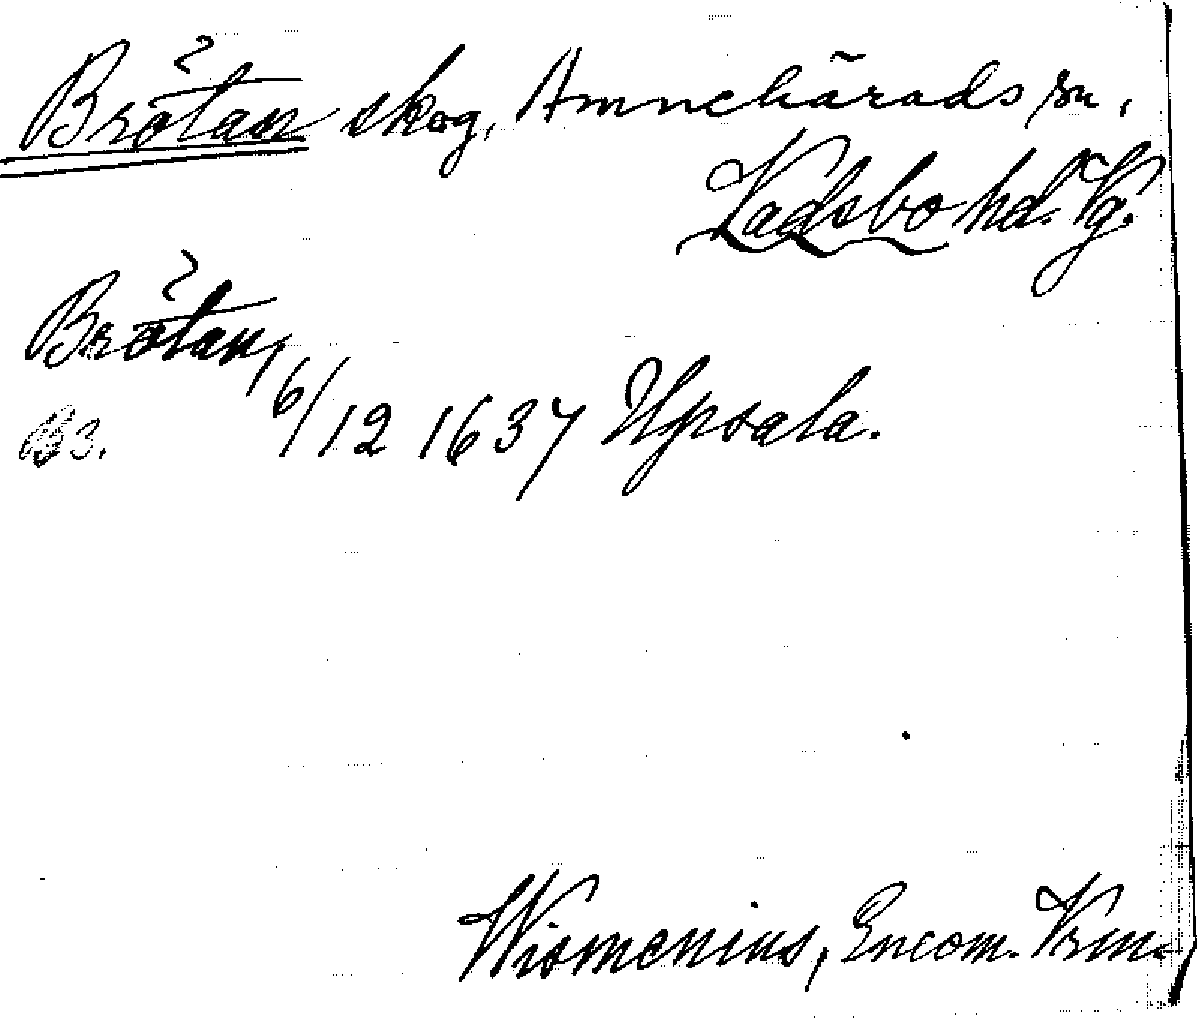 Brötan skog, Amnehärads sn,
Vadsbo hd. Vg.
Brötan,
B3. 6/12 1637 Upsala.
Wismenius, Encom. Vrm.